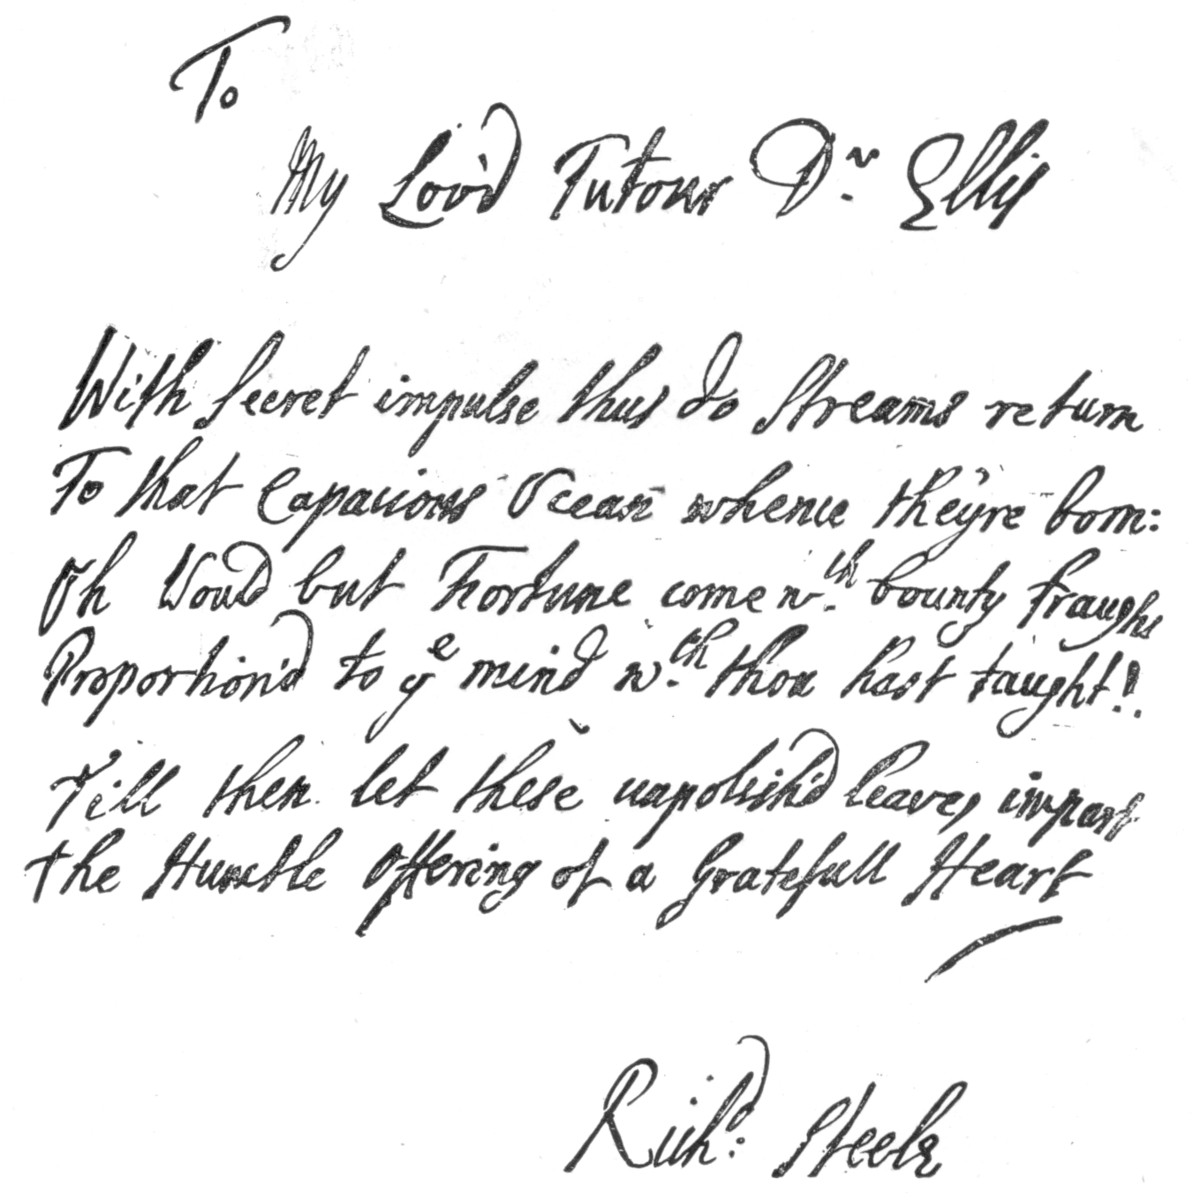 To
My Lov'd Tutour Dr. Ellis
With Secret impulse thus do Streams return
To that Capacious Ocean whence they're born:
Oh Woud but Fortune come wth. bounty fraught
Proportion'd to ye mind wch. thou hast taught!!
Till then let these unpolish'd leaves impart
the Humble Offering of a Gratefull Heart
Richd: Steele